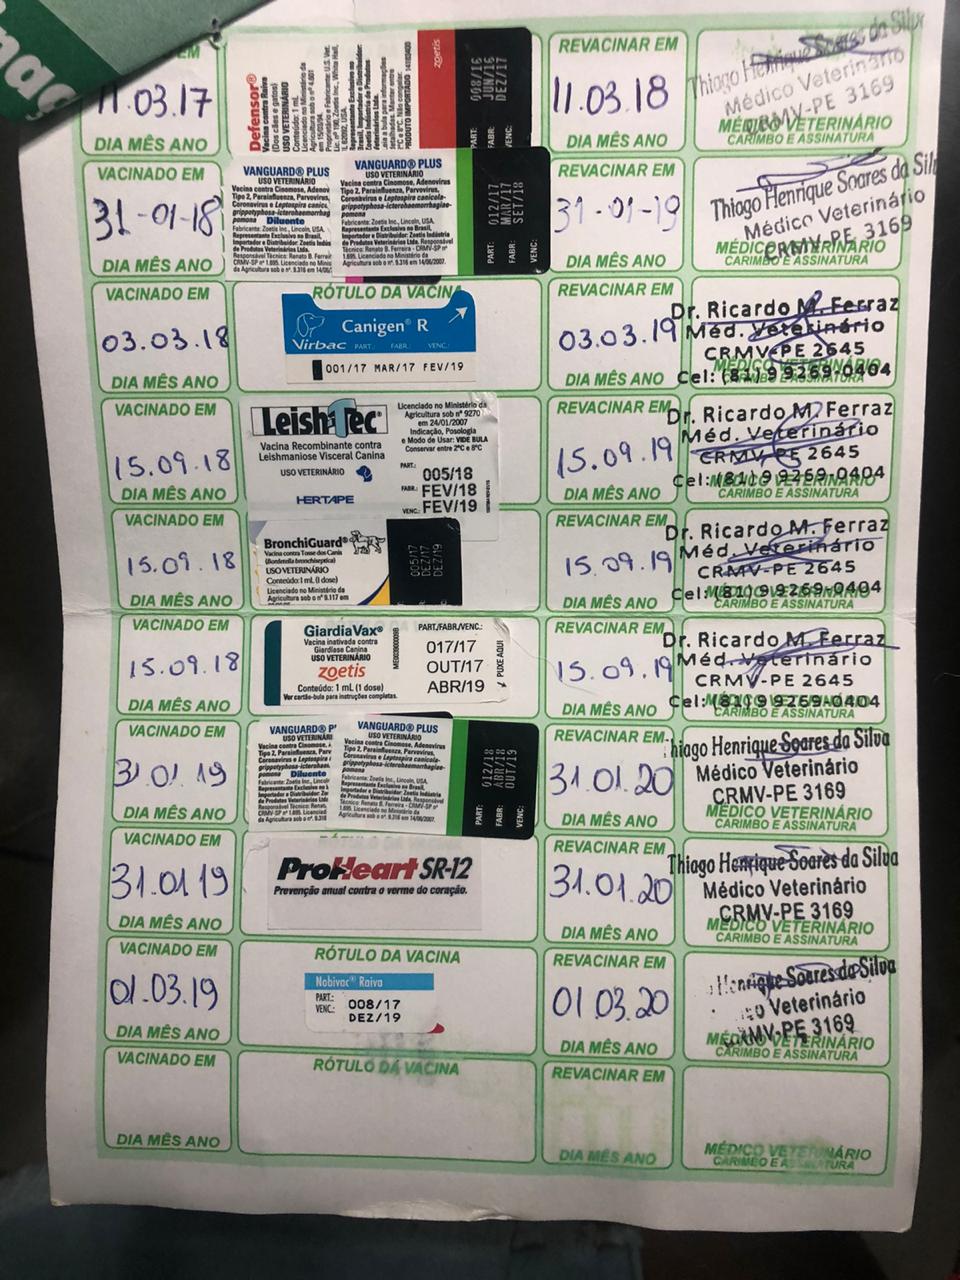 nag
EM
11.03.17
DIA MÊS ANO
Defensor®
Vacina contra Raiva
(Dos cães e gatos)
USO VETERINÁRIO
Conteúdo: 1 mL
zoetis
PART: 008/16
FABR: JUN/16
VENC: DEZ/17
REVACINAR EM
11.03.18
DIA MÊS ANO
Thiago Henrique Soares da Silva
Médico Veterinário
CRMV-PE 3169
MÉDICO VETERINÁRIO
CARIMBO E ASSINATURA
VACINADO EM
31-01-18
DIA MÊS ANO
VANGUARD® PLUS
USO VETERINÁRIO
Diluente
VANGUARD® PLUS
USO VETERINÁRIO
Vacina contra Cinomose, Adenovírus
Tipo 2, Parainfluenza, Parvovírus,
Coronavírus e Leptospira canicola-
grippotyphosa-icterohaemorrhagiae-
pomona
Fabricante: Zoetis Inc., Lincoln, USA.
Representante Exclusivo no Brasil,
Importador e Distribuidor: Zoetis Indústria
de Produtos Veterinários Ltda. Responsável
Técnico: Renato B. Ferreira - CRMV-SP nº
1.695. Licenciado no Ministério da
Agricultura sob o nº. 9.316 em 14/06/2007.
PART: 012/17
FABR: MAR/17
VENC: SET/18
REVACINAR EM
31-01-19
DIA MÊS ANO
Thiago Henrique Soares da Sil
Médico Veterinário
CRMV-PE 3169
MÉDICO VETERINÁRIO
CARIMBO E ASSINATURA
VACINADO EM
03.03.18
DIA MÊS ANO
RÓTULO DA VACINA
Canigen® R
Virbac PART.: FABR.: VENC.:
001/17 MAR/17 FEV/19
REVACINAR EM
03.03.19
DIA MÊS ANO
Dr. Ricardo M. Ferraz
Méd. Veterinário
CRMV-PE 2645
Cel: (81) 9 9269-0404
VACINADO EM
15.09.18
DIA MÊS ANO
LeishTec®
Vacina Recombinante contra
Leishmaniose Visceral Canina
USO VETERINÁRIO
HERTAPE
Licenciado no Ministério da
Agricultura sob nº 9270
em 24/01/2007
Indicação, Posologia
e Modo de Usar: VIDE BULA
Conservar entre 2ºC e 8ºC
PART.: 005/18
FABR.: FEV/18
VENC.: FEV/19
REVACINAR EM
15.09.19
DIA MÊS ANO
Dr. Ricardo M. Ferraz
Méd. Veterinário
CRMV-PE 2645
Cel: (81) 9 9269-0404
CARIMBO E ASSINATURA
VACINADO EM
15.09.18
DIA MÊS ANO
BronchiGuard®
Vacina contra Tosse dos Canis
(Bordetella bronchiseptica)
USO VETERINÁRIO
Conteúdo: 1 mL (1 dose)
Licenciado no Ministério da
Agricultura sob o nº 9.117 em
005/17
DEZ/17
DEZ/19
REVACINAR EM
15.09.19
DIA MÊS ANO
Dr. Ricardo M. Ferraz
Méd. Veterinário
CRMV-PE 2645
Cel: (81) 9 9269-0404
CARIMBO E ASSINATURA
VACINADO EM
15.09.18
DIA MÊS ANO
GiardiaVax®
Vacina inativada contra
Giardíase Canina
USO VETERINÁRIO
zoetis
Conteúdo: 1 mL (1 dose)
Ver cartão-bula para instruções completas.
PART./FABR./VENC.:
017/17
OUT/17
ABR/19
PUXE AQUI
REVACINAR EM
15.09.19
DIA MÊS ANO
Dr. Ricardo M. Ferraz
Méd. Veterinário
CRMV-PE 2645
Cel: (81) 9 9269-0404
CARIMBO E ASSINATURA
VACINADO EM
31.01.19
DIA MÊS ANO
VANGUARD® P
USO VETERINÁRI
Diluente
VANGUARD® PLUS
USO VETERINÁRIO
Vacina contra Cinomose, Adenovírus
Tipo 2, Parainfluenza, Parvovírus,
Coronavírus e Leptospira canicola-
grippotyphosa-icterohaemorrhagiae-
pomona
Fabricante: Zoetis Inc., Lincoln, USA.
Representante Exclusivo no Brasil,
Importador e Distribuidor: Zoetis Indústria
de Produtos Veterinários Ltda. Responsável
Técnico: Renato B. Ferreira - CRMV-SP nº
1.695. Licenciado no Ministério da
Agricultura sob o nº. 9.316 em 14/06/2007.
PART: 012/18
FABR: ABR/18
VENC: OUT/19
REVACINAR EM
31.01.20
DIA MÊS ANO
hiago Henrique Soares da Silva
Médico Veterinário
CRMV-PE 3169
MÉDICO VETERINÁRIO
CARIMBO E ASSINATURA
VACINADO EM
31.01.19
DIA MÊS ANO
RÓTULO DA VACINA
ProHeart SR-12
Prevenção anual contra o verme do coração.
REVACINAR EM
31.01.20
DIA MÊS ANO
Thiago Henrique Soares da Silva
Médico Veterinário
CRMV-PE 3169
MÉDICO VETERINÁRIO
CARIMBO E ASSINATURA
VACINADO EM
01.03.19
DIA MÊS ANO
RÓTULO DA VACINA
Nobivac® Raiva
PART.: 008/17
VENC.: DEZ/19
REVACINAR EM
01.03.20
DIA MÊS ANO
Henrique Soares da Silva
Veterinário
CRMV-PE 3169
MÉDICO VETERINÁRIO
CARIMBO E ASSINATURA
VACINADO EM
DIA MÊS ANO
RÓTULO DA VACINA
REVACINAR EM
DIA MÊS ANO
MÉDICO VETERINÁRIO
CARIMBO E ASSINATURA